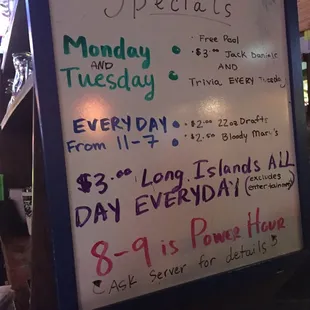 Specials
Monday
AND
Tuesday
Free Pool
$3.00 Jack Daniels
AND
Trivia EVERY Tuesday
EVERYDAY
From 11-7
$2.00 22oz Drafts
$2.50 Bloody Mary's
$3.00 Long Islands ALL
DAY EVERYDAY (excludes
entertainment)
8-9 is Power Hour
ASK Server for details